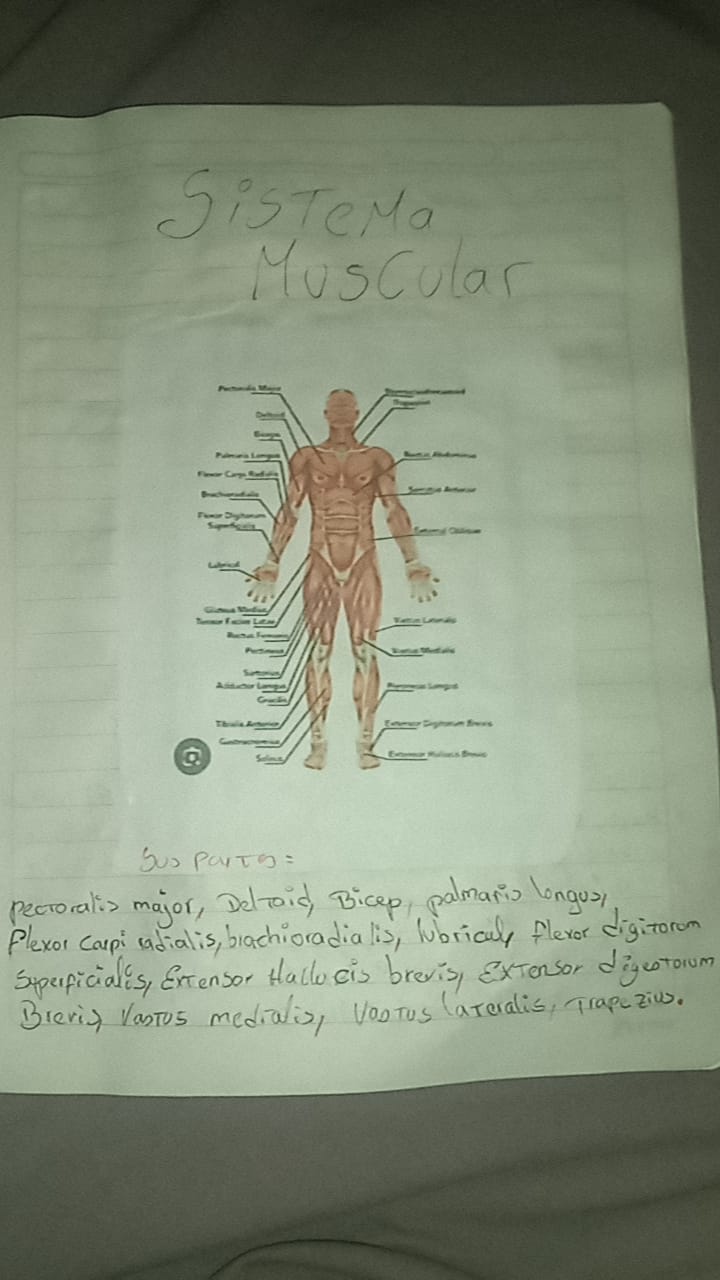 Sistema
Muscular
Pectoralis Major
Deltoid
Biceps
Palmaris Longus
Flexor Carpi Radialis
Brachioradialis
Flexor Digitorum
Superficialis
Lubrical
Gluteus Medius
Tensor Fasciae Latae
Rectus Femoris
Pectineus
Sartorius
Adductor Longus
Gracilis
Tibialis Anterior
Gastrocnemius
Soleus
Trapezius
Rectus Abdominus
Serratus Anterior
External Oblique
Vastus Lateralis
Vastus Medialis
Peroneus Longus
Extensor Digitorum Brevis
Extensor Hallucis Brevis
Sus Partes =
pectoralis major, Deltoid, Bicep, palmaris longus,
flexor carpi radialis, brachioradialis, lubrical, flexor digitorum
Superficialis, Extensor Hallucis brevis, Extensor digeotorum
Brevis, Vastus medialis, Vastus lateralis, Trapezius.